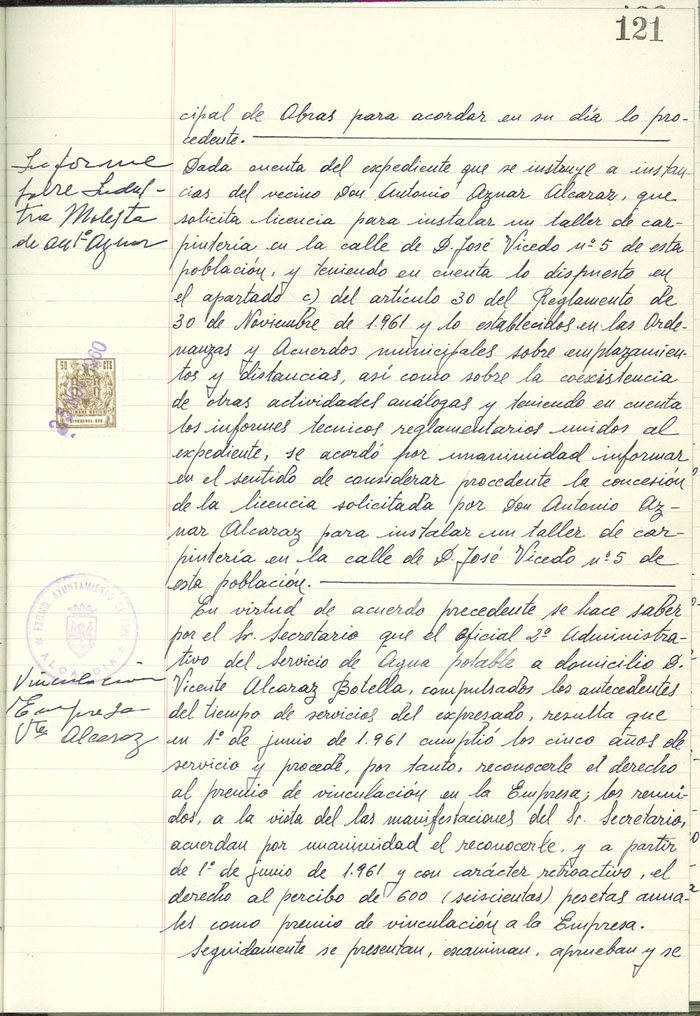 121
cipal de Obras para acordar en su día lo pro-
cedente.
Informe
sobre Indus-
tria Molesta
de Antº Aznar
Dada cuenta del expediente que se instruye a instan-
cias del vecino Don Antonio Aznar Alcaraz, que
solicita licencia para instalar un taller de car-
pintería en la calle de D. José Vicedo nº 5 de esta
población, y teniendo en cuenta lo dispuesto en
el apartado c) del artículo 30 del Reglamento de
30 de Noviembre de 1.961 y lo establecidos en las Orde-
nanzas y Acuerdos municipales sobre emplazamien-
tos y distancias, así como sobre la coexistencia
de otras actividades análogas y teniendo en cuenta
los informes tecnicos reglamentarios unidos al
expediente, se acordó por unanimidad informar
en el sentido de considerar procedente la concesión
de la licencia solicitada por Don Antonio Az-
nar Alcaraz para instalar un taller de car-
pintería en la calle de D. José Vicedo nº 5 de
esta población.
50 CTS
AYUNTAMIENTO DE
ALCALDIA
Vinculación
Empresa
Vte Alcaraz
En virtud de acuerdo precedente se hace saber
por el Sr. Secretario que el oficial 2º Administra-
tivo del Servicio de Agua potable a domicilio D.
Vicente Alcaraz Botella, compulsados los antecedentes
del tiempo de servicios del expresado, resulta que
en 1º de junio de 1.961 cumplió los cinco años de
servicio y procede, por tanto, reconocerle el derecho
al premio de vinculación en la Empresa; los reuni-
dos, a la vista del las manifestaciones del Sr. Secretario,
acuerdan por unanimidad el reconocerle, y a partir
de 1º de junio de 1.961 y con carácter retroactivo, el
derecho al percibo de 600 (seiscientas) pesetas anua-
les como premio de vinculación a la Empresa.
Seguidamente se presentan, examinan, aprueban y se